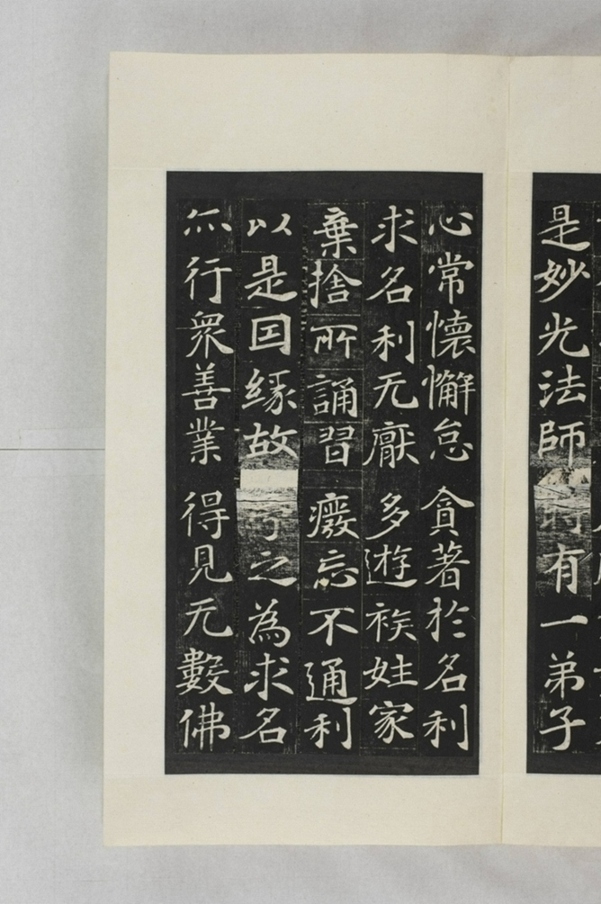 是妙光法師 時有一弟子
心常懷懈怠 貪著於名利
求名利无厭 多遊族姓家
棄捨所誦習 癈忘不通利
以是因緣故 号之為求名
亦行衆善業 得見无數佛